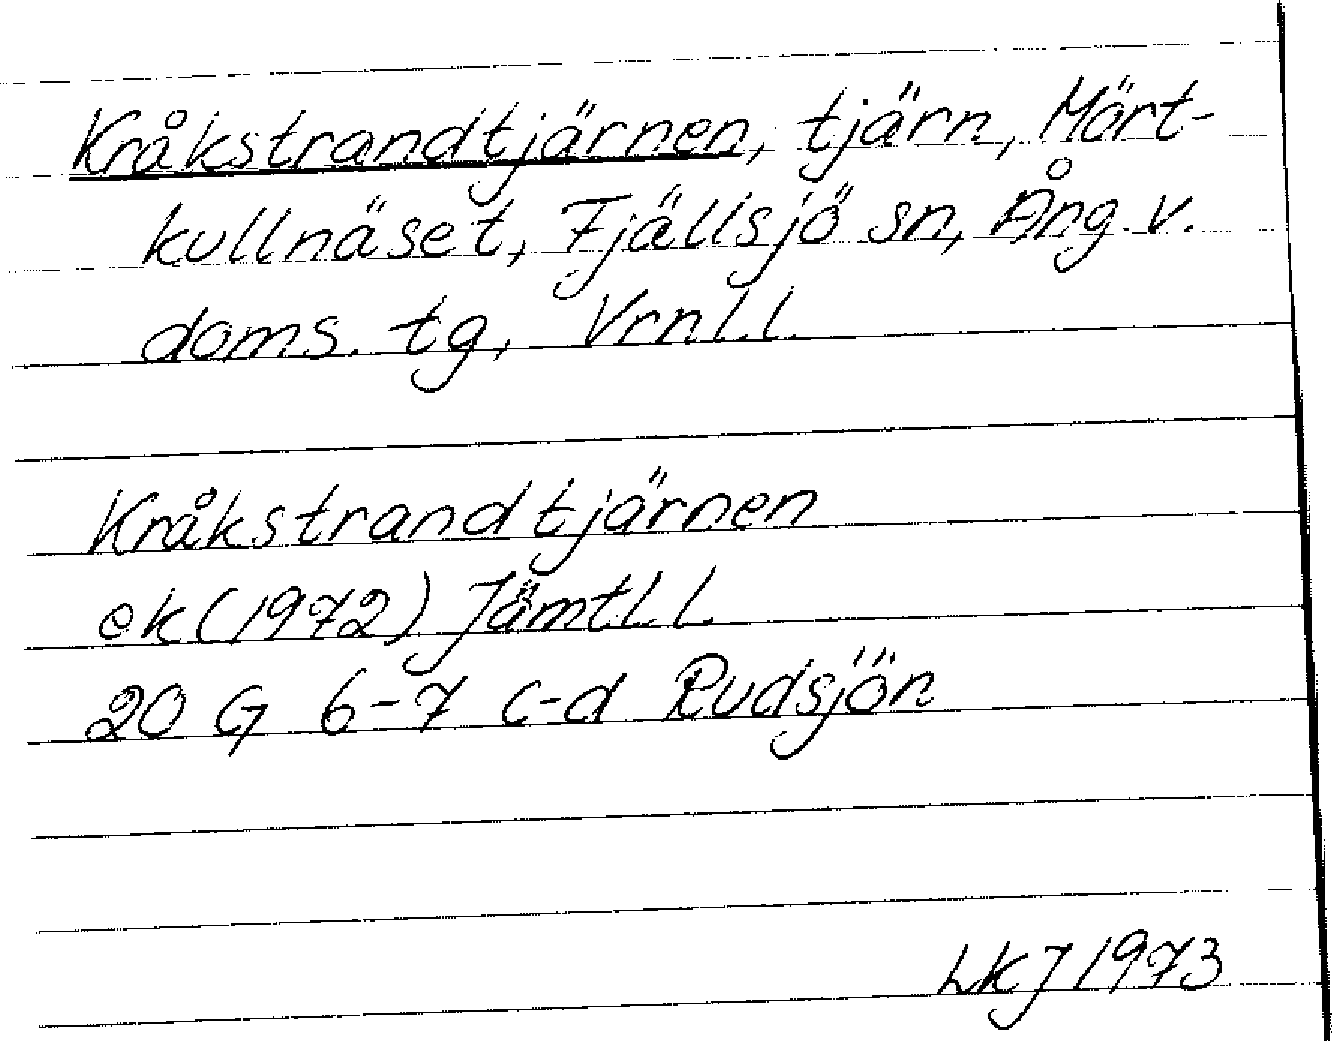 Kråkstrandtjärnen, tjärn, Märt-
kullnäset, Fjällsjö sn, Ång. v.
doms. tg, Vrnl.l.
Kråkstrandtjärnen
ek (1972) Jämtl.l.
20 G 6-7 c-d Rudsjön
LKJ 1973